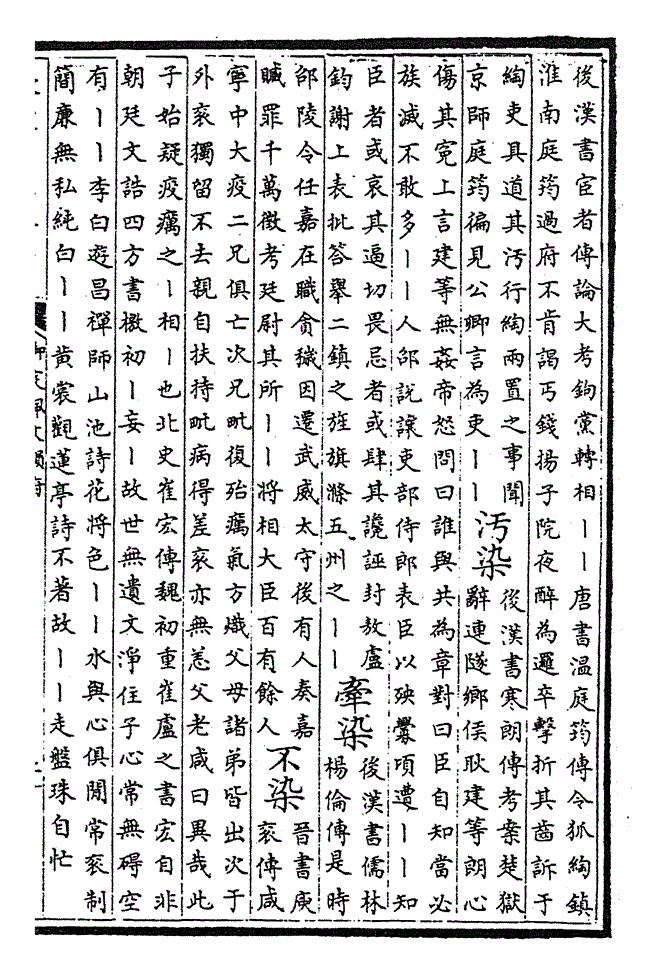 後漢書宦者傳論大考鈎黨轉相丨丨唐書温庭筠傳令狐綯鎮
淮南庭筠過府不肯謁丐錢揚子院夜醉為邏卒擊折其齒訴于
綯吏具道其汚行綯兩置之事聞
京師庭筠徧見公卿言為吏丨丨
汚染
後漢書寒朗傳考案楚獄
辭連隧鄉侯耿建等朗心
傷其寃上言建等無姦帝怒問曰誰與共為章對曰臣自知當必
族滅不敢多丨丨人邵說讓吏部侍郎表臣以殃釁項遭丨丨知
臣者或哀其逼切畏忌者或肆其讒誣封敖盧
鈞謝上表批答舉二鎮之旌旗滌五州之丨丨
牽染
後漢書儒林
楊倫傳是時
邵陵令任嘉在職貪穢因遷武威太守後有人奏嘉
贓罪千萬徵考廷尉其所丨丨將相大臣百有餘人
不染
晉書庾
袞傳咸
寧中大疫二兄俱亡次兄毗復殆癘氣方熾父母諸弟皆出次于
外袞獨留不去親自扶持毗病得差袞亦無恙父老咸曰異哉此
子始疑疫癘之丨相丨也北史崔宏傳魏初重崔盧之書宏自非
朝廷文誥四方書檄初丨妄丨故世無遺文淨住子心常無碍空
有丨丨李白遊昌禪師山池詩花將色丨丨水與心俱閒常袞制
簡廉無私純白丨丨黄裳觀蓮亭詩不著故丨丨走艦珠自忙